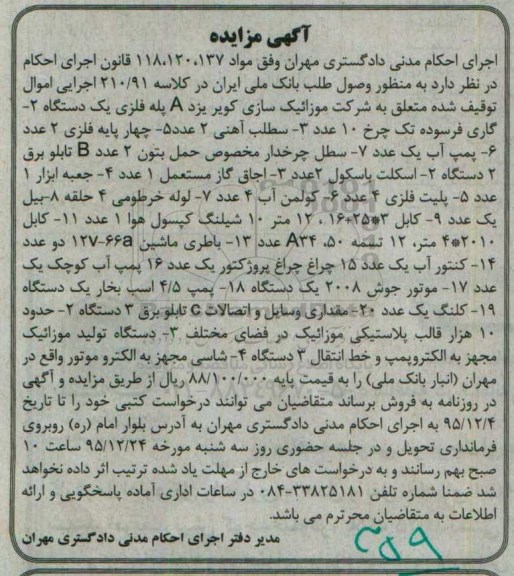 آگهی مزایده
اجرای احکام مدنی دادگستری مهران وفق مواد ۱۱۸،۱۲۰،۱۳۷ قانون اجرای احکام
در نظر دارد به منظور وصول طلب بانک ملی ایران در کلاسه ۲۱۰/۹۱ اجرایی اموال
توقیف شده متعلق به شرکت موزائیک سازی کویر یزد A پله فلزی یک دستگاه ۲-
گاری فرسوده تک چرخ ۱۰ عدد ۳- سطلب آهنی ۲ عدد۵- چهار پایه فلزی ۲ عدد
۶- پمپ آب یک عدد ۷- سطل چرخدار مخصوص حمل بتون ۲ عدد B تابلو برق
۲ دستگاه ۲- اسکلت باسکول ۲عدد ۳- اجاق گاز مستعمل ۱ عدد ۴- جعبه ابزار ۱
عدد ۵- پلیت فلزی ۴ عدد ۶- کولمن آب ۴ عدد ۷- لوله خرطومی ۴ حلقه ۸-بیل
یک عدد ۹- کابل ۳*۲۵+۱۶، ۱۲ متر ۱۰ شیلنگ کپسول هوا ۱ عدد ۱۱- کابل
۱۰*۴ ۲۰ متر، ۱۲ تسمه ۵۰، A۳۴ عدد ۱۳- باطری ماشین ۱۲۷-۶۶a دو عدد
۱۴- کنتور آب یک عدد ۱۵ چراغ چراغ پروژکتور یک عدد ۱۶ پمپ آب کوچک یک
عدد ۱۷- موتور جوش ۲۰۰۸ یک دستگاه ۱۸- پمپ ۴/۵ اسب بخار یک دستگاه
۱۹- کلنگ یک عدد ۲۰- مقداری وسایل و اتصالات c تابلو برق ۳ دستگاه ۲- حدود
۱۰ هزار قالب پلاستیکی موزائیک در فضای مختلف ۳- دستگاه تولید موزائیک
مجهز به الکتروپمپ و خط انتقال ۳ دستگاه ۴- شاسی مجهز به الکترو موتور واقع در
مهران (انبار بانک ملی) را به قیمت پایه ۸۸/۱۰۰/۰۰۰ ریال از طریق مزایده و آگهی
در روزنامه به فروش برساند متقاضیان می توانند درخواست کتبی خود را تا تاریخ
۹۵/۱۲/۴ به اجرای احکام مدنی دادگستری مهران به آدرس بلوار امام (ره) روبروی
فرمانداری تحویل و در جلسه حضوری روز سه شنبه مورخه ۹۵/۱۲/۲۴ ساعت ۱۰
صبح بهم رسانند و به درخواست های خارج از مهلت یاد شده ترتیب اثر داده نخواهد
شد ضمنا شماره تلفن ۳۳۸۲۵۱۸۱-۰۸۴ در ساعات اداری آماده پاسخگویی و ارائه
اطلاعات به متقاضیان محرترم می باشد.
مدیر دفتر اجرای احکام مدنی دادگستری مهران